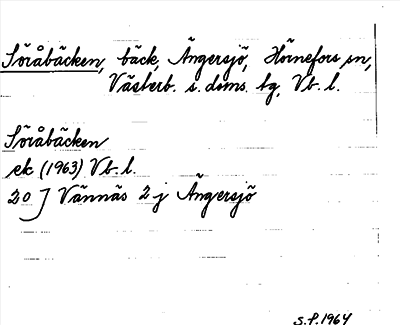 Söråbäcken, bäck, Ängersjö, Hörnefors sn,
Västerb. s. doms. tg, Vb. l.
Söråbäcken
ek (1963) Vb. l.
20 J Vännäs 2 j Ängersjö
S.P. 1964